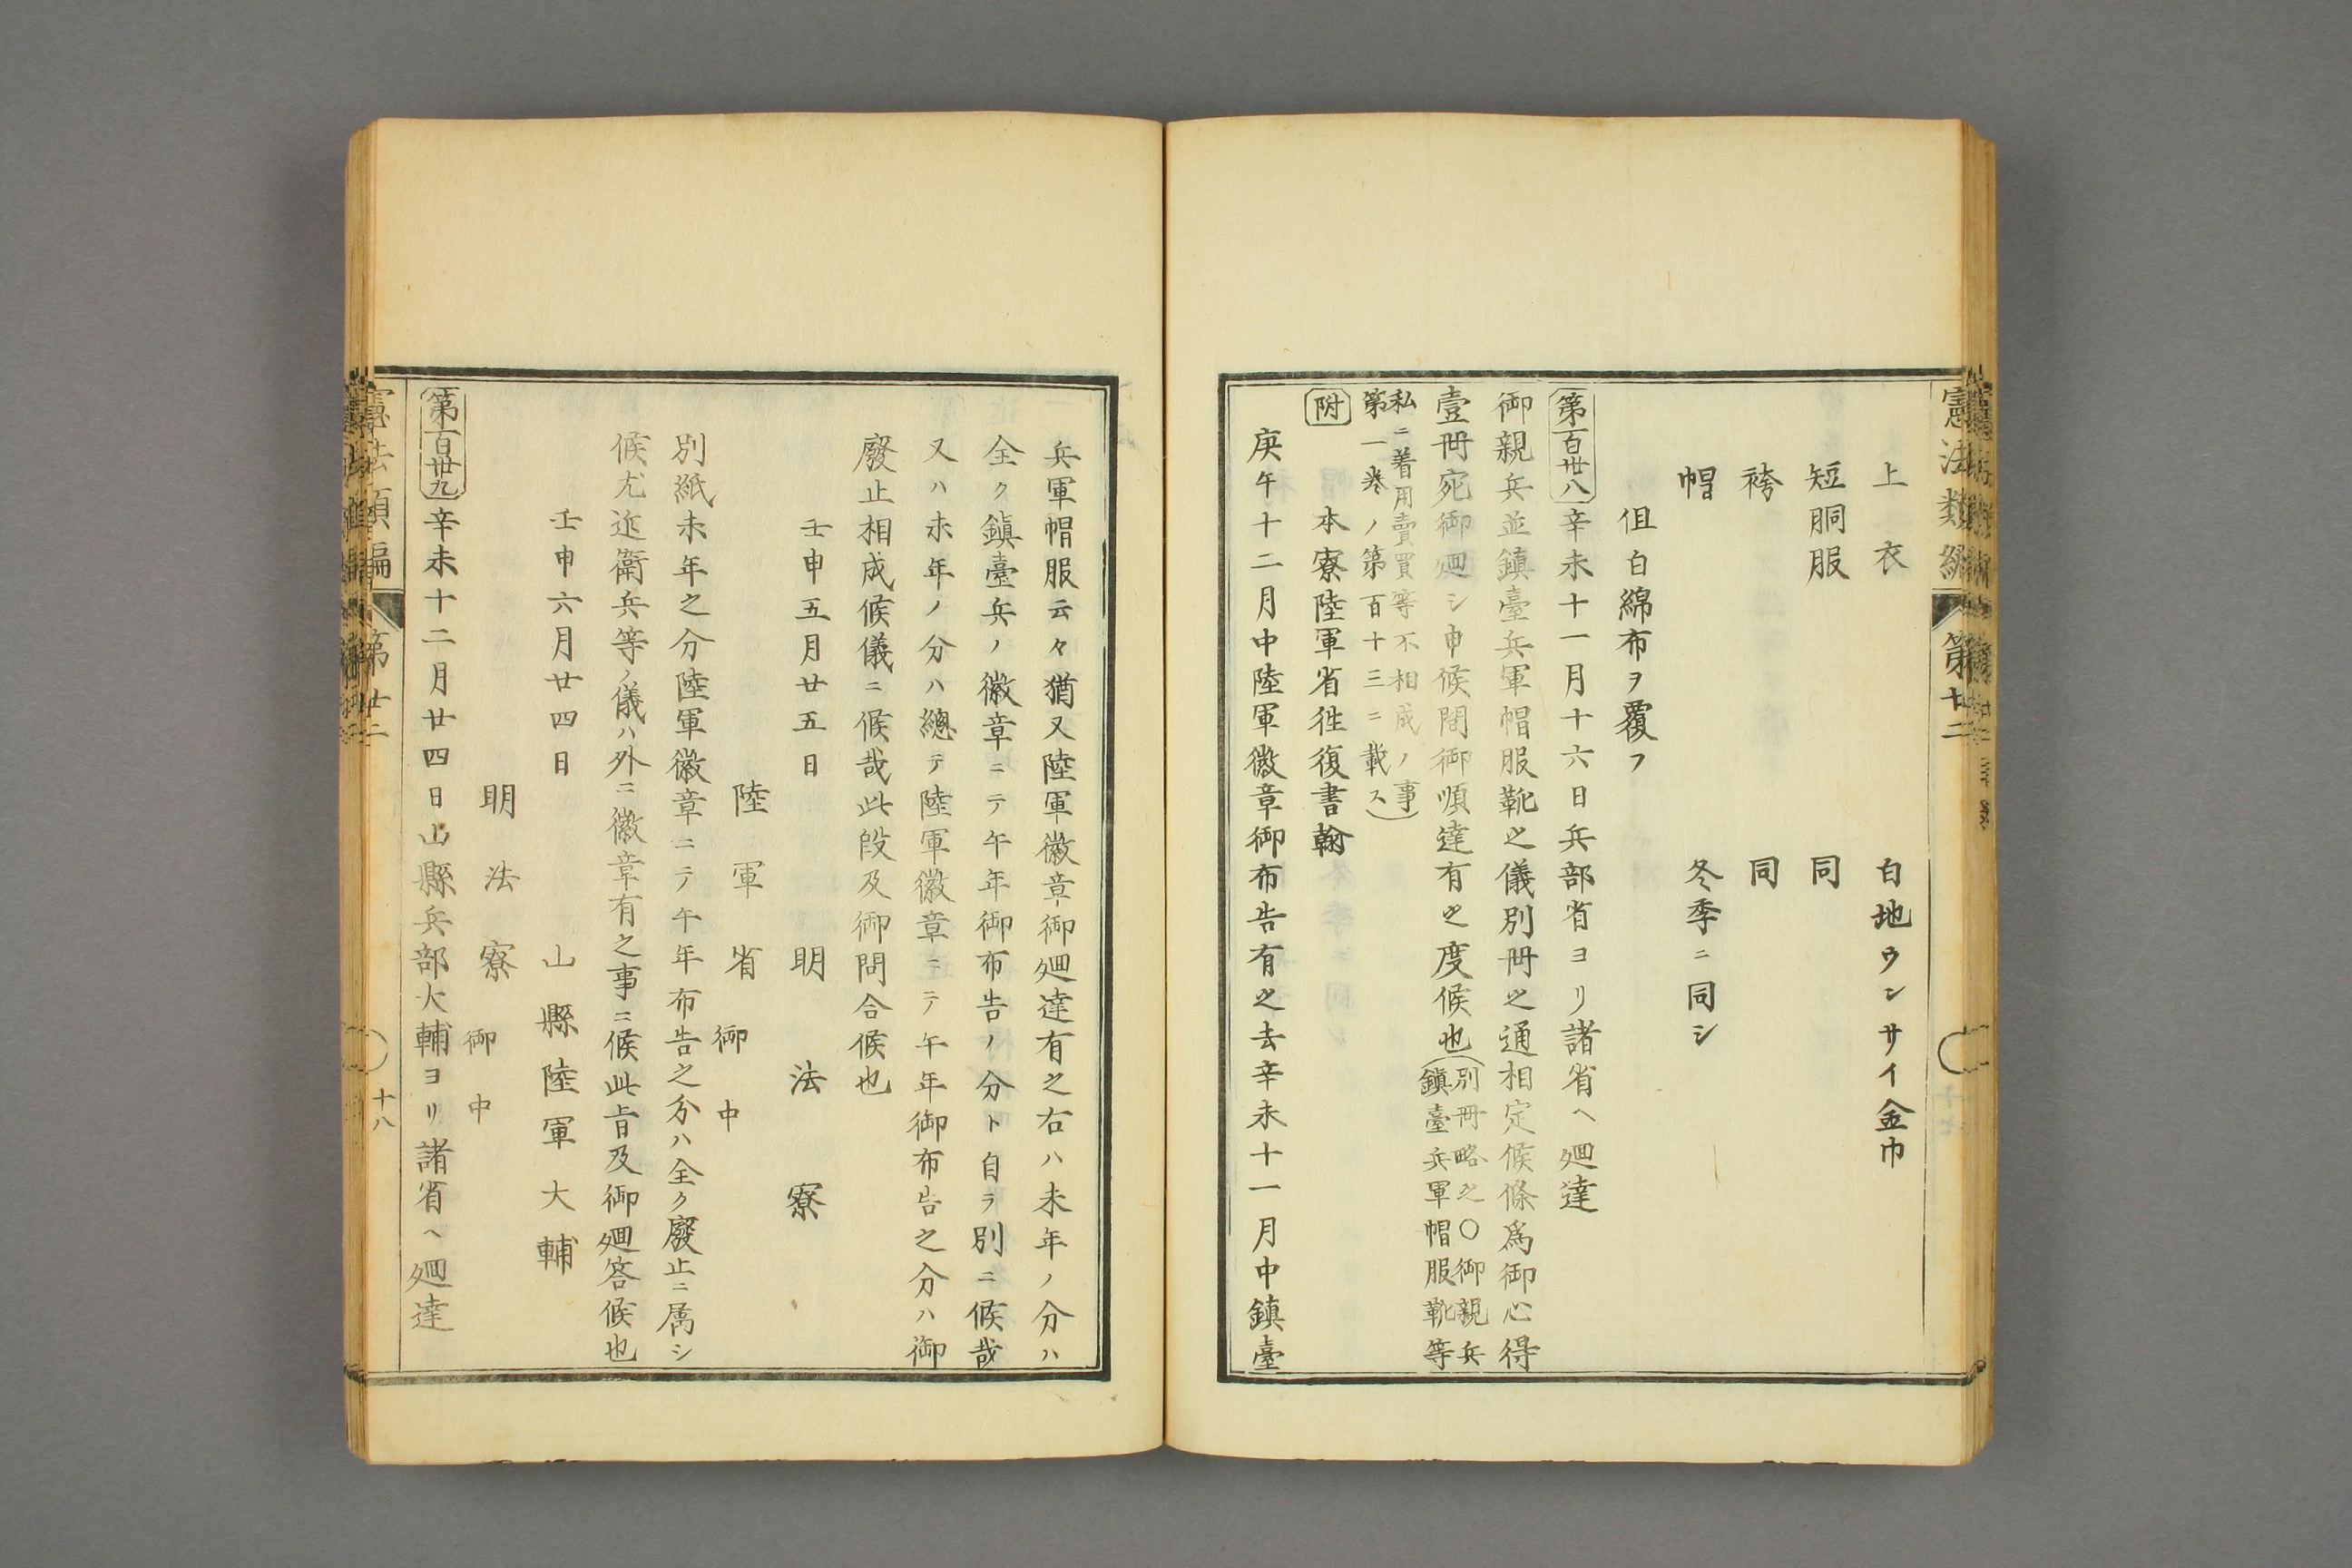 憲法類編
第廿二
上衣 白地ウンサイ金巾
短胴服 同
袴 同
帽 冬季ニ同シ
但白綿布ヲ覆フ
第百卅八 辛未十一月十六日兵部省ヨリ諸省ヘ廻達
御親兵並鎮臺兵軍帽服靴之儀別冊之通相定候條爲御心得
壹冊宛御廻シ申候間御順達有之度候也(別冊略之〇御親兵
鎮臺兵軍帽服靴等
私ニ着用賣買等不相成ノ事)
第一巻ノ第百十三ニ載ス
附 本寮陸軍省徃復書翰
庚午十二月中陸軍徽章御布告有之去辛未十一月中鎮臺
兵軍帽服云々猶又陸軍徽章御廻達有之右ハ未年ノ分ハ
全ク鎮臺兵ノ徽章ニテ午年御布告ノ分ト自ラ別ニ候哉
又ハ未年ノ分ハ總テ陸軍徽章ニテ午年御布告之分ハ御
廢止相成候儀ニ候哉此段及御問合候也
壬申五月廿五日 明法寮
陸軍省御中
別紙未年之分陸軍徽章ニテ午年布告之分ハ全ク廢止ニ属シ
候尤近衛兵等ノ儀ハ外ニ徽章有之事ニ候此旨及御廻答候也
壬申六月廿四日 山縣陸軍大輔
明法寮御中
第百卅九 辛未十二月廿四日山縣兵部大輔ヨリ諸省ヘ廻達
憲法類編
第廿二
十八